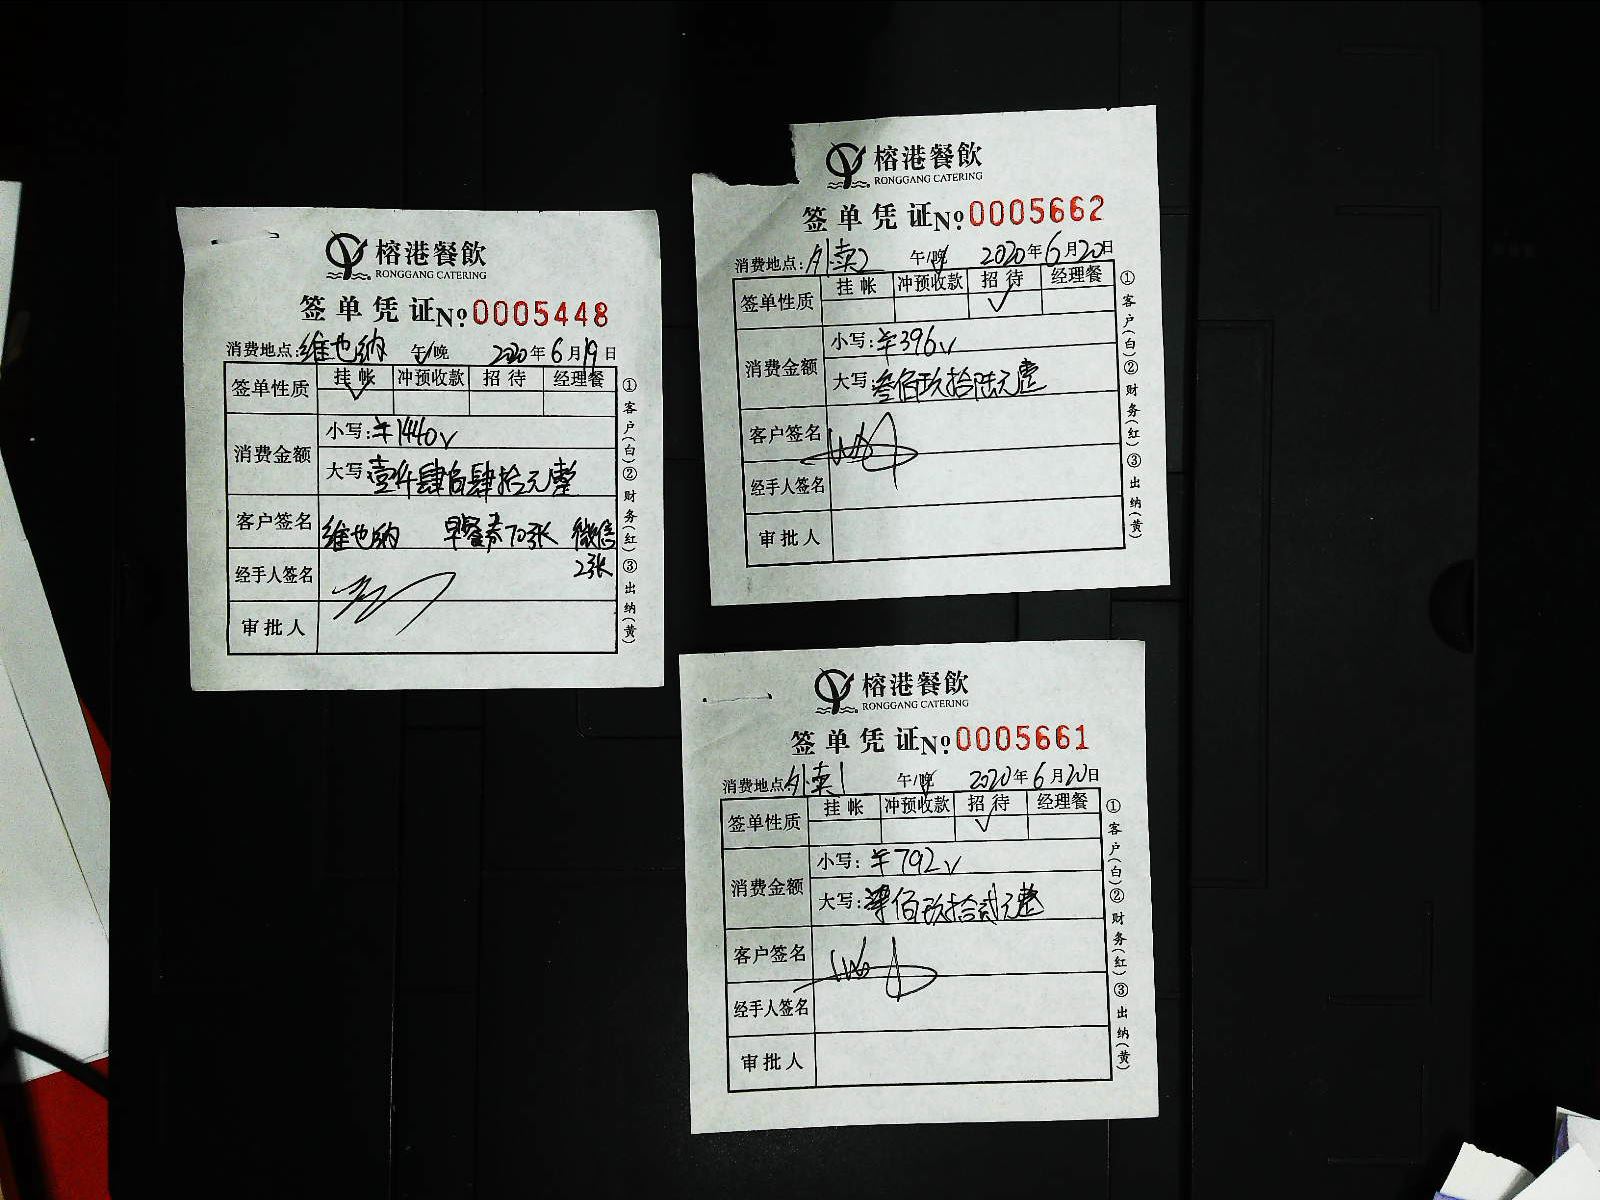 榕港餐飲
RONGGANG CATERING
签单凭证№0005448
消费地点:维也纳 午/晚 2020年6月19日
签单性质 挂帐 冲预收款 招待 经理餐
消费金额
小写:¥1440
大写 壹仟肆佰肆拾元整
客户签名 维也纳 早餐券70张 微信
2张
经手人签名
审批人
①客户(白)②财务(红)③出纳(黄)
榕港餐飲
RONGGANG CATERING
签单凭证№0005662
消费地点:外卖2 午/晚 2020年6月20日
签单性质 挂帐 冲预收款 招待 经理餐
消费金额
小写:¥396
大写:叁佰玖拾陆元整
客户签名
经手人签名
审批人
①客户(白)②财务(红)③出纳(黄)
榕港餐飲
RONGGANG CATERING
签单凭证№0005661
消费地点:外卖1 午/晚 2020年6月20日
签单性质 挂帐 冲预收款 招待 经理餐
消费金额
小写:¥792
大写:柒佰玖拾贰元整
客户签名
经手人签名
审批人
①客户(白)②财务(红)③出纳(黄)